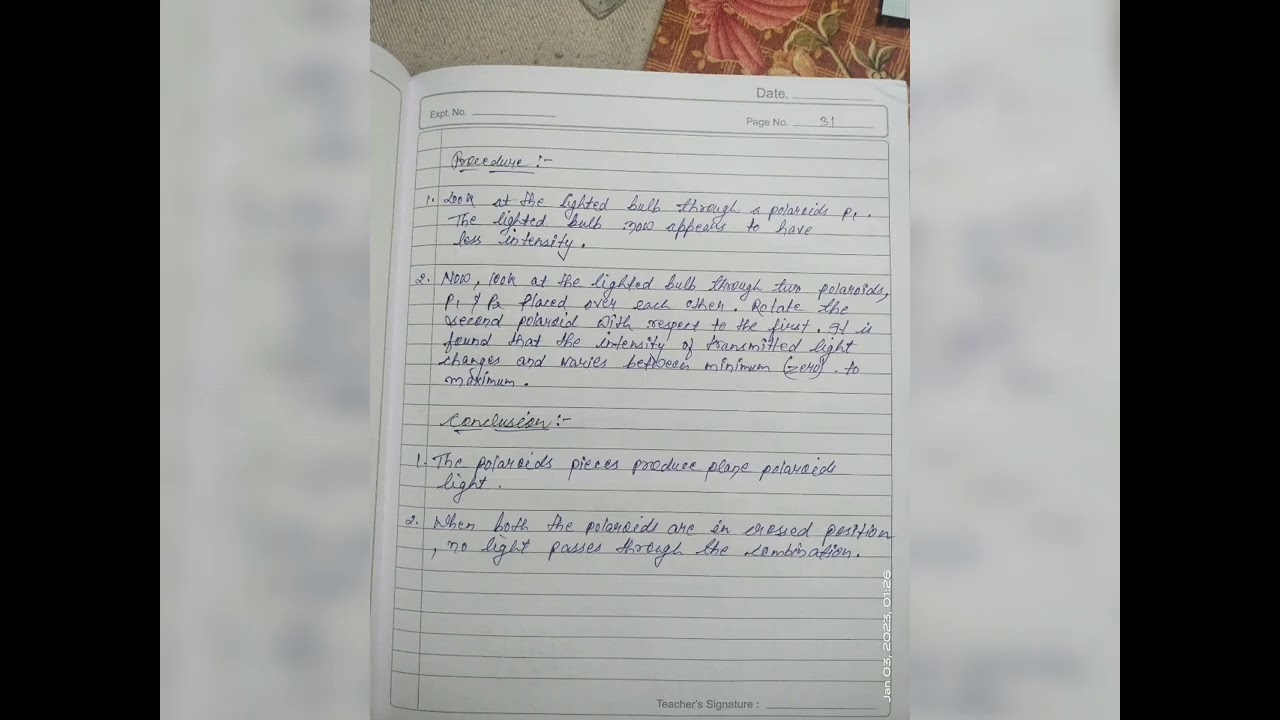 Date.
Expt. No.
Page No. 31
Procedure :-
1. Look at the lighted bulb through a polaroids P1.
The lighted bulb now appears to have
less intensity.
2. Now, look at the lighted bulb through two polaroids,
P1 & P2 placed over each other. Rotate the
second polaroid with respect to the first. It is
found that the intensity of transmitted light
changes and varies between minimum (zero) to
maximum.
Conclusion :-
1. The polaroids pieces produce plane polaroids
light.
2. When both the polaroids are in crossed position
, no light passes through the combination.
Teacher's Signature :
Jan 03, 2023, 01:26